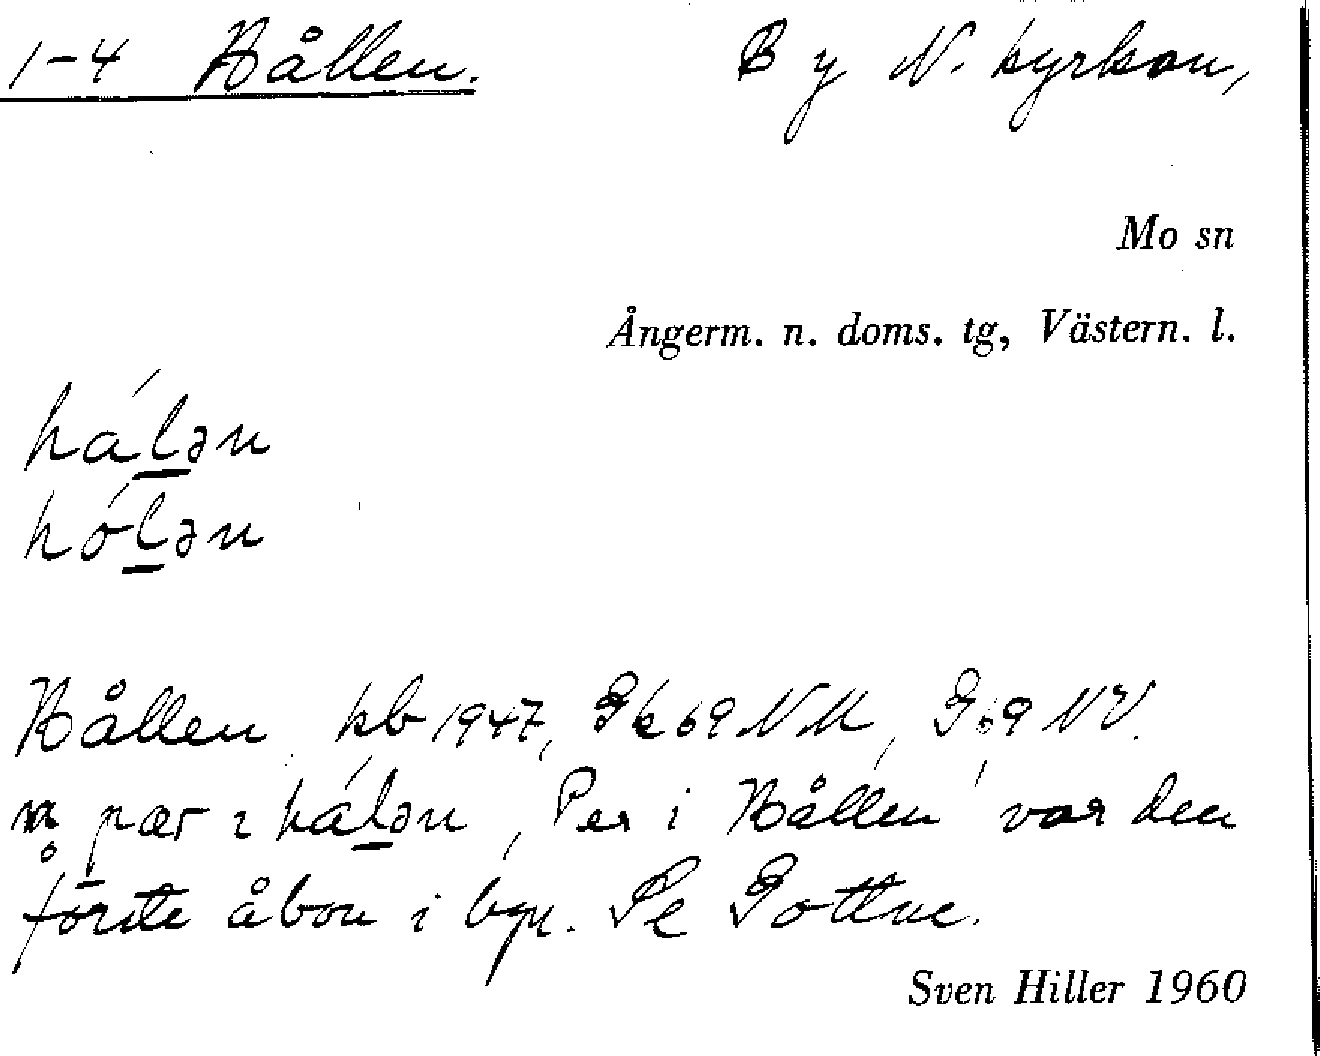 1-4 Hållen. By N. kyrkan,
Mo sn
Ångerm. n. doms. tg, Västern. l.
hálən
hólən
Hållen kb 1947, Gk 69 NV.
pær ɩ hálən, Per i Hållen var den
förste åbon i byn. Se Gottne.
Sven Hiller 1960